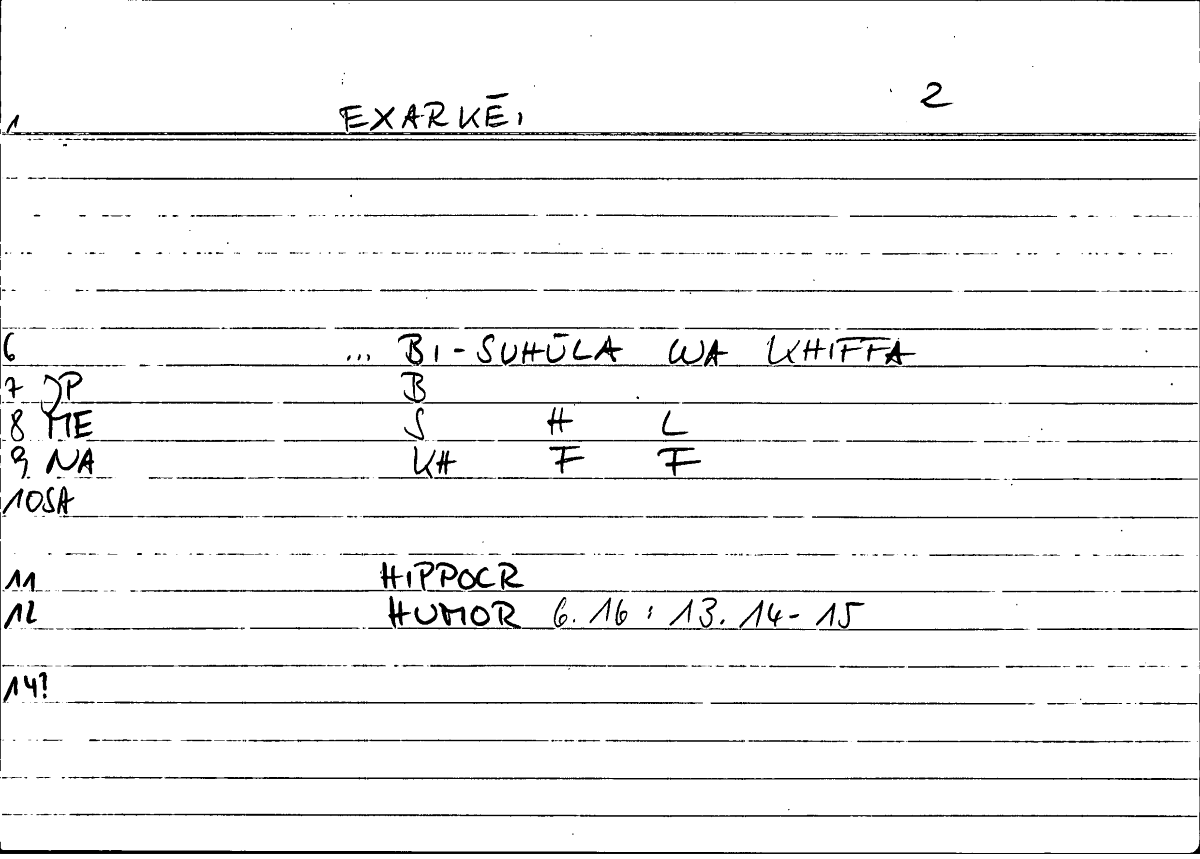 2
1 EXARKĒI
6 ... BI-SUHŪLA WA KHIFFA
7 JP B
8 ME S H L
9 NA KH F F
10 SA
11 HIPPOCR
12 HUMOR 6.16 : 13.14-15
14?